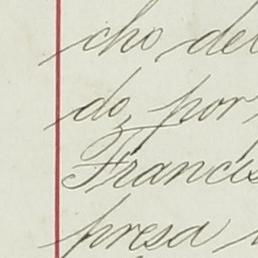 cho del
do, por
Francis
presa